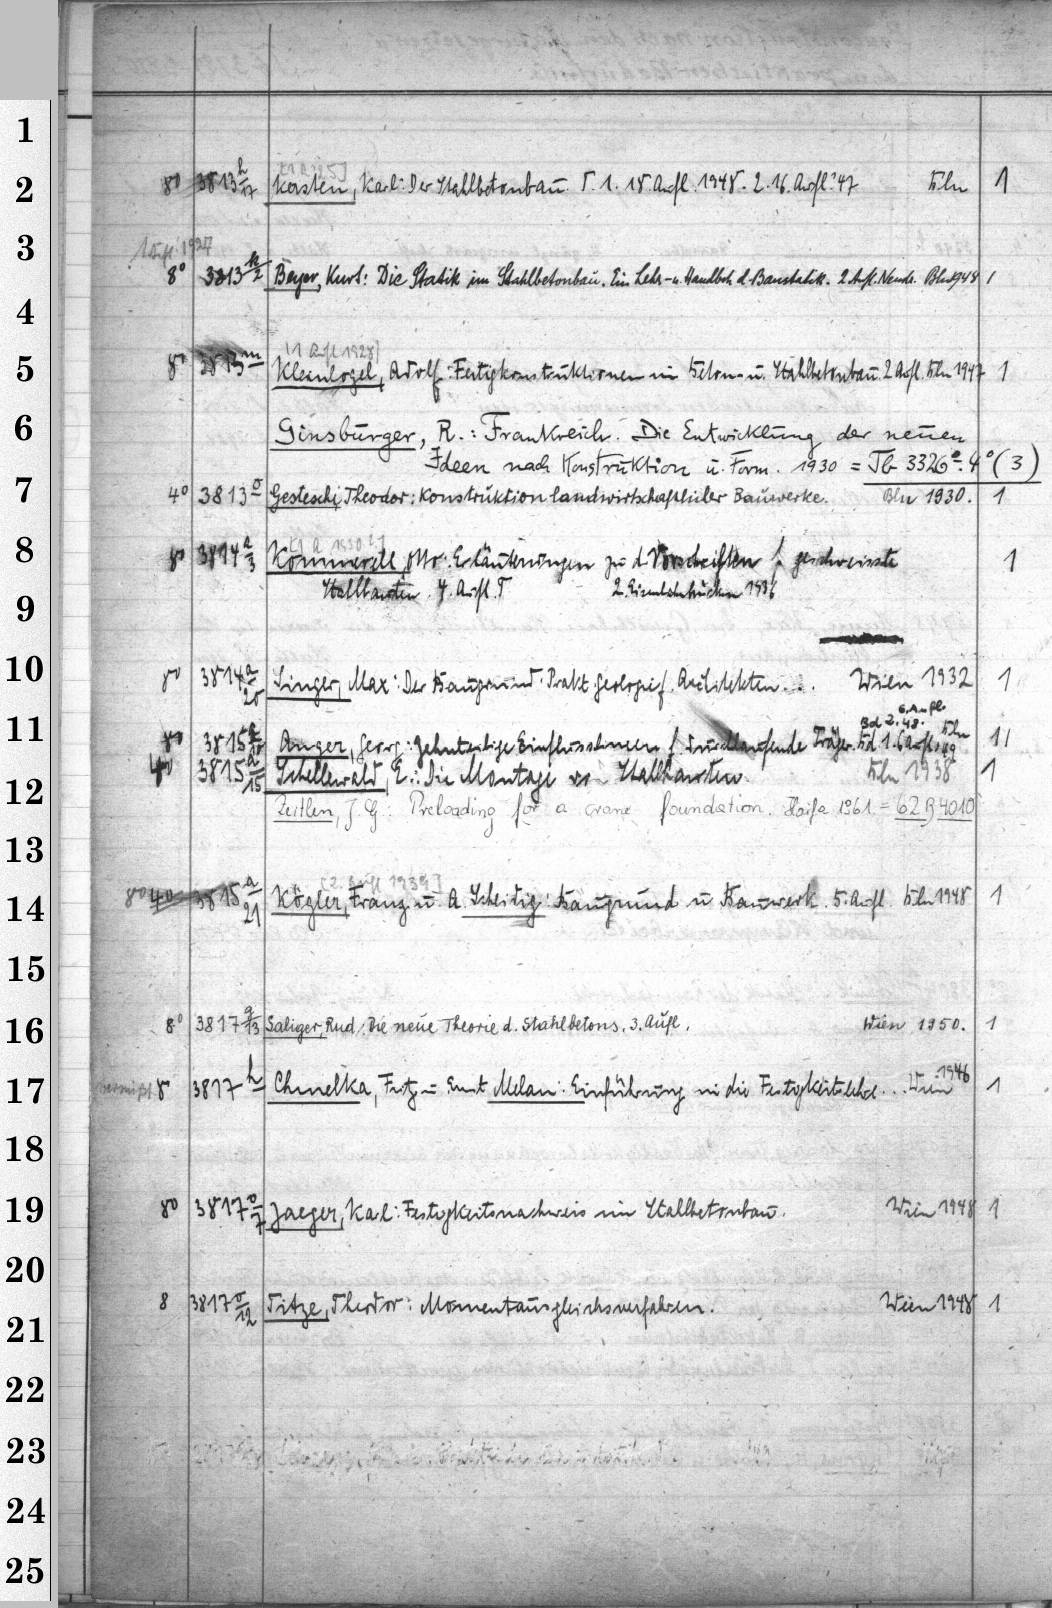 1
2
8° 3813 h/17 Kersten, Karl: Der Stahlbetonbau. T. 1. 18. Aufl. 1948. 2. 16. Aufl. '47 Bln 1
3
8° 3813 k/2 Beyer, Kurt: Die Statik im Stahlbetonbau. Ein Lehr- u. Handbch d. Baustatik. 2. Aufl. Neudr. Bln 1948 1
4
[1 Aufl 1928]
5
8° 3813 m Kleinlogel, Adolf: Fertigkonstruktionen im Beton- u. Stahlbetonbau. 2 Aufl. Bln 1947 1
6
Ginsburger, R.: Frankreich. Die Entwicklung der neuen
Ideen nach Konstruktion u. Form. 1930 = Tb 3326 e. 4° (3)
7
4° 3813 o Gesteschi, Theodor: Konstruktion landwirtschaftlicher Bauwerke. Bln 1930. 1
8
8° 3814 a/3 Kommerell, Otto: Erläuterungen zu d. Vorschriften f. geschweisste 1
Stahlbauten. 4. Aufl. T 2. Eisenbahnbrücken 1936
9
10
8° 3814 a/20 Singer, Max: Der Baugrund. Prakt Geologie f. Architekten... Wien 1932 1
11
6. Aufl.
Bd 2. 48.
8° 3815 Anger, Georg: Zehnteilige Einflusslinien f. durchlaufende Träger. Bd. 1. 6 Aufl. 49 Bln 11
4° 3815 a/15 Schellewald, E.: Die Montage von Stahlbauten. Bln 1938 1
12
Zeitlen, J. G.: Preloading for a crane foundation. Haifa 1961. = 62 B 4010
13
[2. Aufl 1939]
8° 4° 3815 a/21 Kögler, Franz u. A. Scheidig: Baugrund u Bauwerk. 5. Aufl. Bln 1948 1
14
15
16
8° 3817 g/13 Saliger, Rud.: Die neue Theorie d. Stahlbetons. 3. Aufl. Wien 1950. 1
17
vermißt 8 3817 h Chmelka, Fritz u Ernst Melan: Einführung in die Festigkeitslehre... Wien 1946 1
18
19
8° 3817 o/7 Jaeger, Karl: Festigkeitsnachweis im Stahlbetonbau. Wien 1948 1
20
21
8 3817 o/12 Titze, Theodor: Momentausgleichsverfahren. Wien 1948 1
22
23
24
25